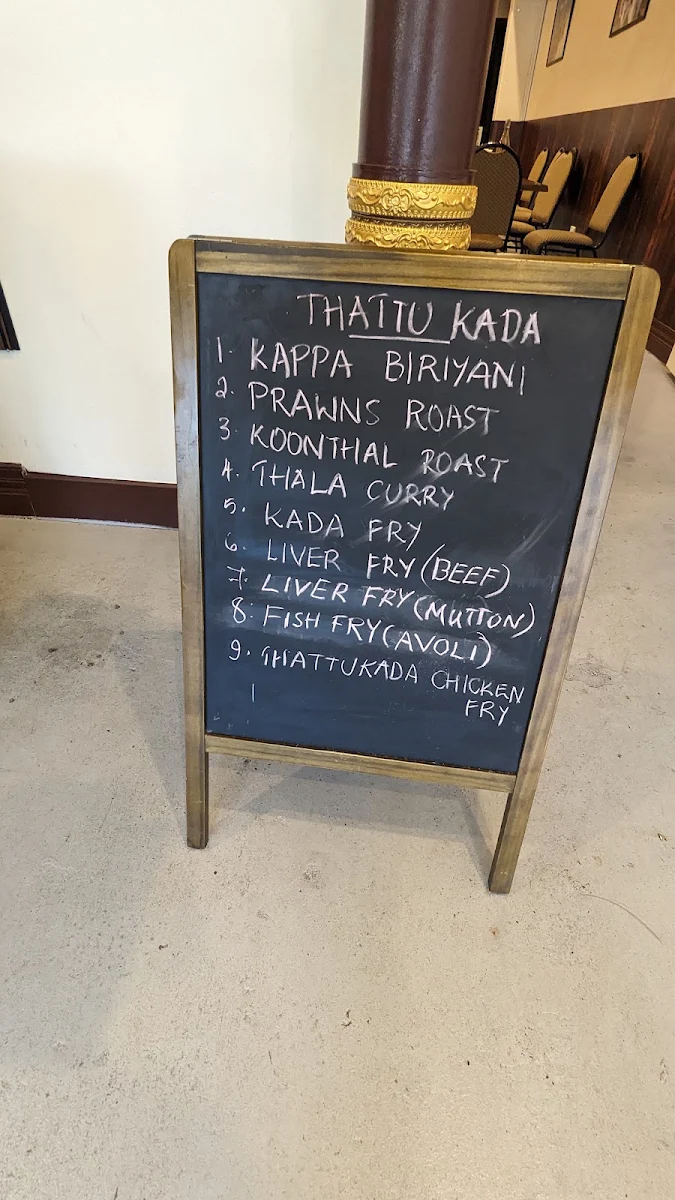 THATTU KADA
1. KAPPA BIRIYANI
2. PRAWNS ROAST
3. KOONTHAL ROAST
4. THALA CURRY
5. KADA FRY
6. LIVER FRY (BEEF)
7. LIVER FRY (MUTTON)
8. FISH FRY (AVOLI)
9. THATTUKADA CHICKEN
FRY